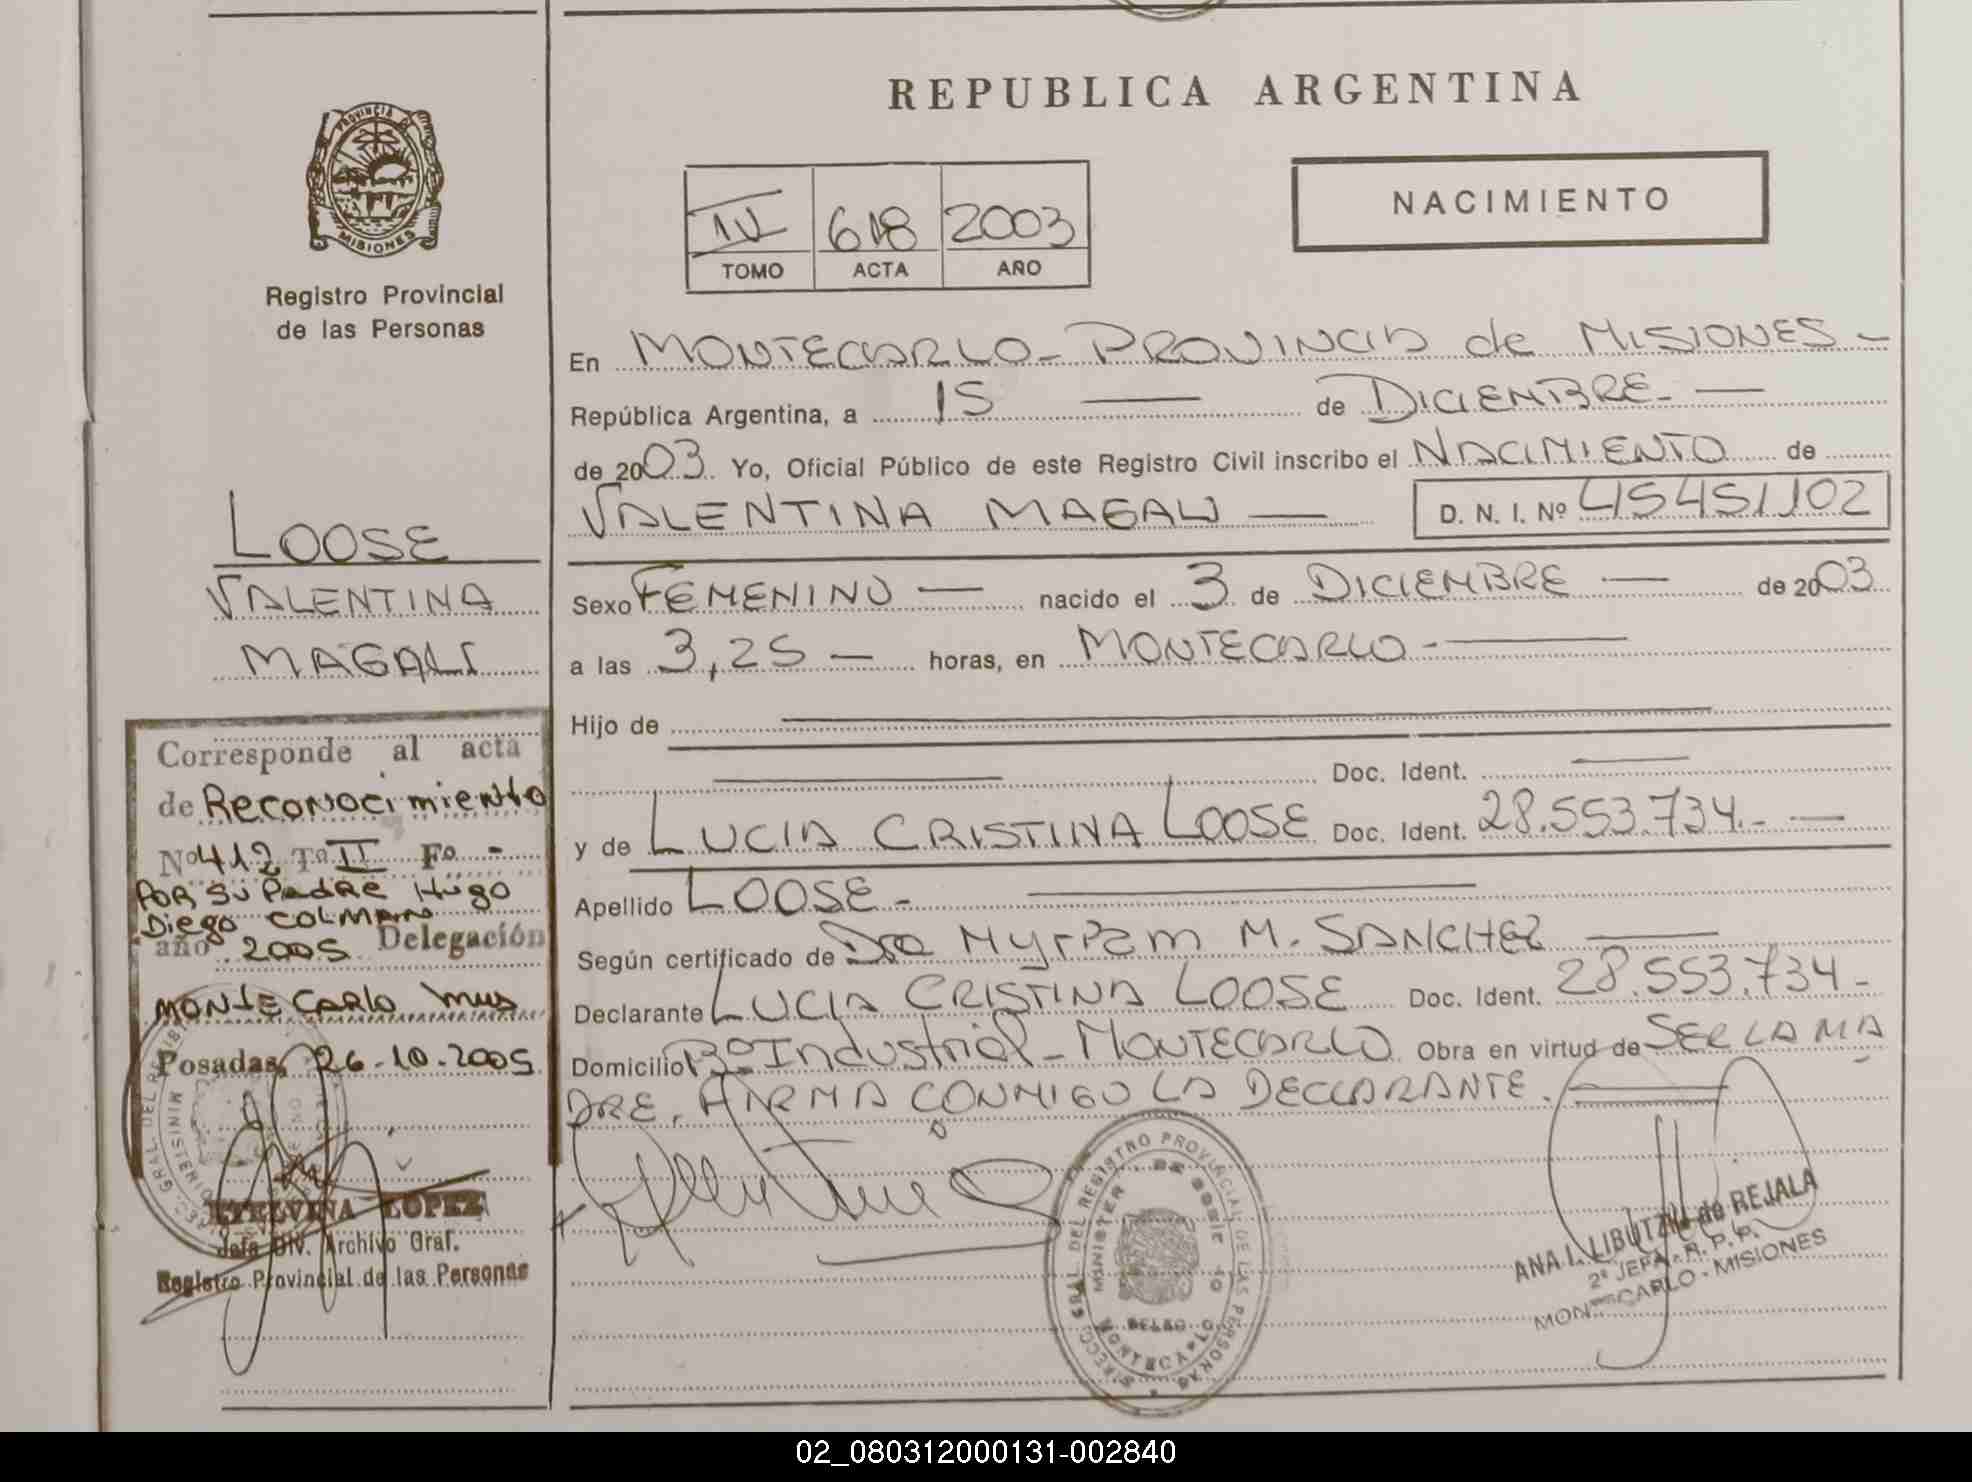 REPUBLICA ARGENTINA
PROVINCIA DE
MISIONES
Registro Provincial
de las Personas
IV 618 2003
TOMO ACTA AÑO
NACIMIENTO
En MONTECARLO - PROVINCIA de MISIONES -
República Argentina, a 15 — de DICIEMBRE. —
de 2003. Yo, Oficial Público de este Registro Civil inscribo el NACIMIENTO de
VALENTINA MAGALI — D. N. I. Nº
Sexo FEMENINO — nacido el 3 de DICIEMBRE — de 2003
a las 3,25 — horas, en MONTECARLO -
Hijo de
Doc. Ident.
y de LUCIA CRISTINA LOOSE Doc. Ident. 28.553.734. -
Apellido LOOSE -
Según certificado de Dra Myriam M. SANCHEZ
Declarante LUCIA CRISTINA LOOSE Doc. Ident. 28.553.734 -
Domicilio Bº Industrial - MONTECARLO. Obra en virtud de SER LA MA
DRE. FIRMA CONMIGO LA DECLARANTE.
LOOSE
VALENTINA
MAGALI
Corresponde al acta
de Reconocimiento
Nº 412 Tº II Fº -
POR SU Padre Hugo
Diego COLMAN
año 2005 Delegación
MONTE CARLO Mnes
Posadas, 26-10-2005
ETELVINA LOPEZ
Jefa Div. Archivo Gral.
Registro Provincial de las Personas
DIRECC. GRAL. DEL REGISTRO PROVINCIAL DE LAS PERSONAS
MONTECARLO
ANA I. de REJALA
2º JEFA - R. P. P.
MONTECARLO - MISIONES
02_080312000131-002840